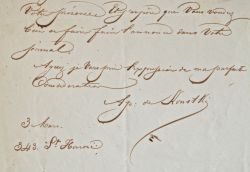 Votre
que vous vouliez
bien faire faire l'annonce dans votre
journal
Agréez je vous prie l'expression de ma parfaite
Considération
Ap. de Kontski
3 Mars.
343. St Honoré.